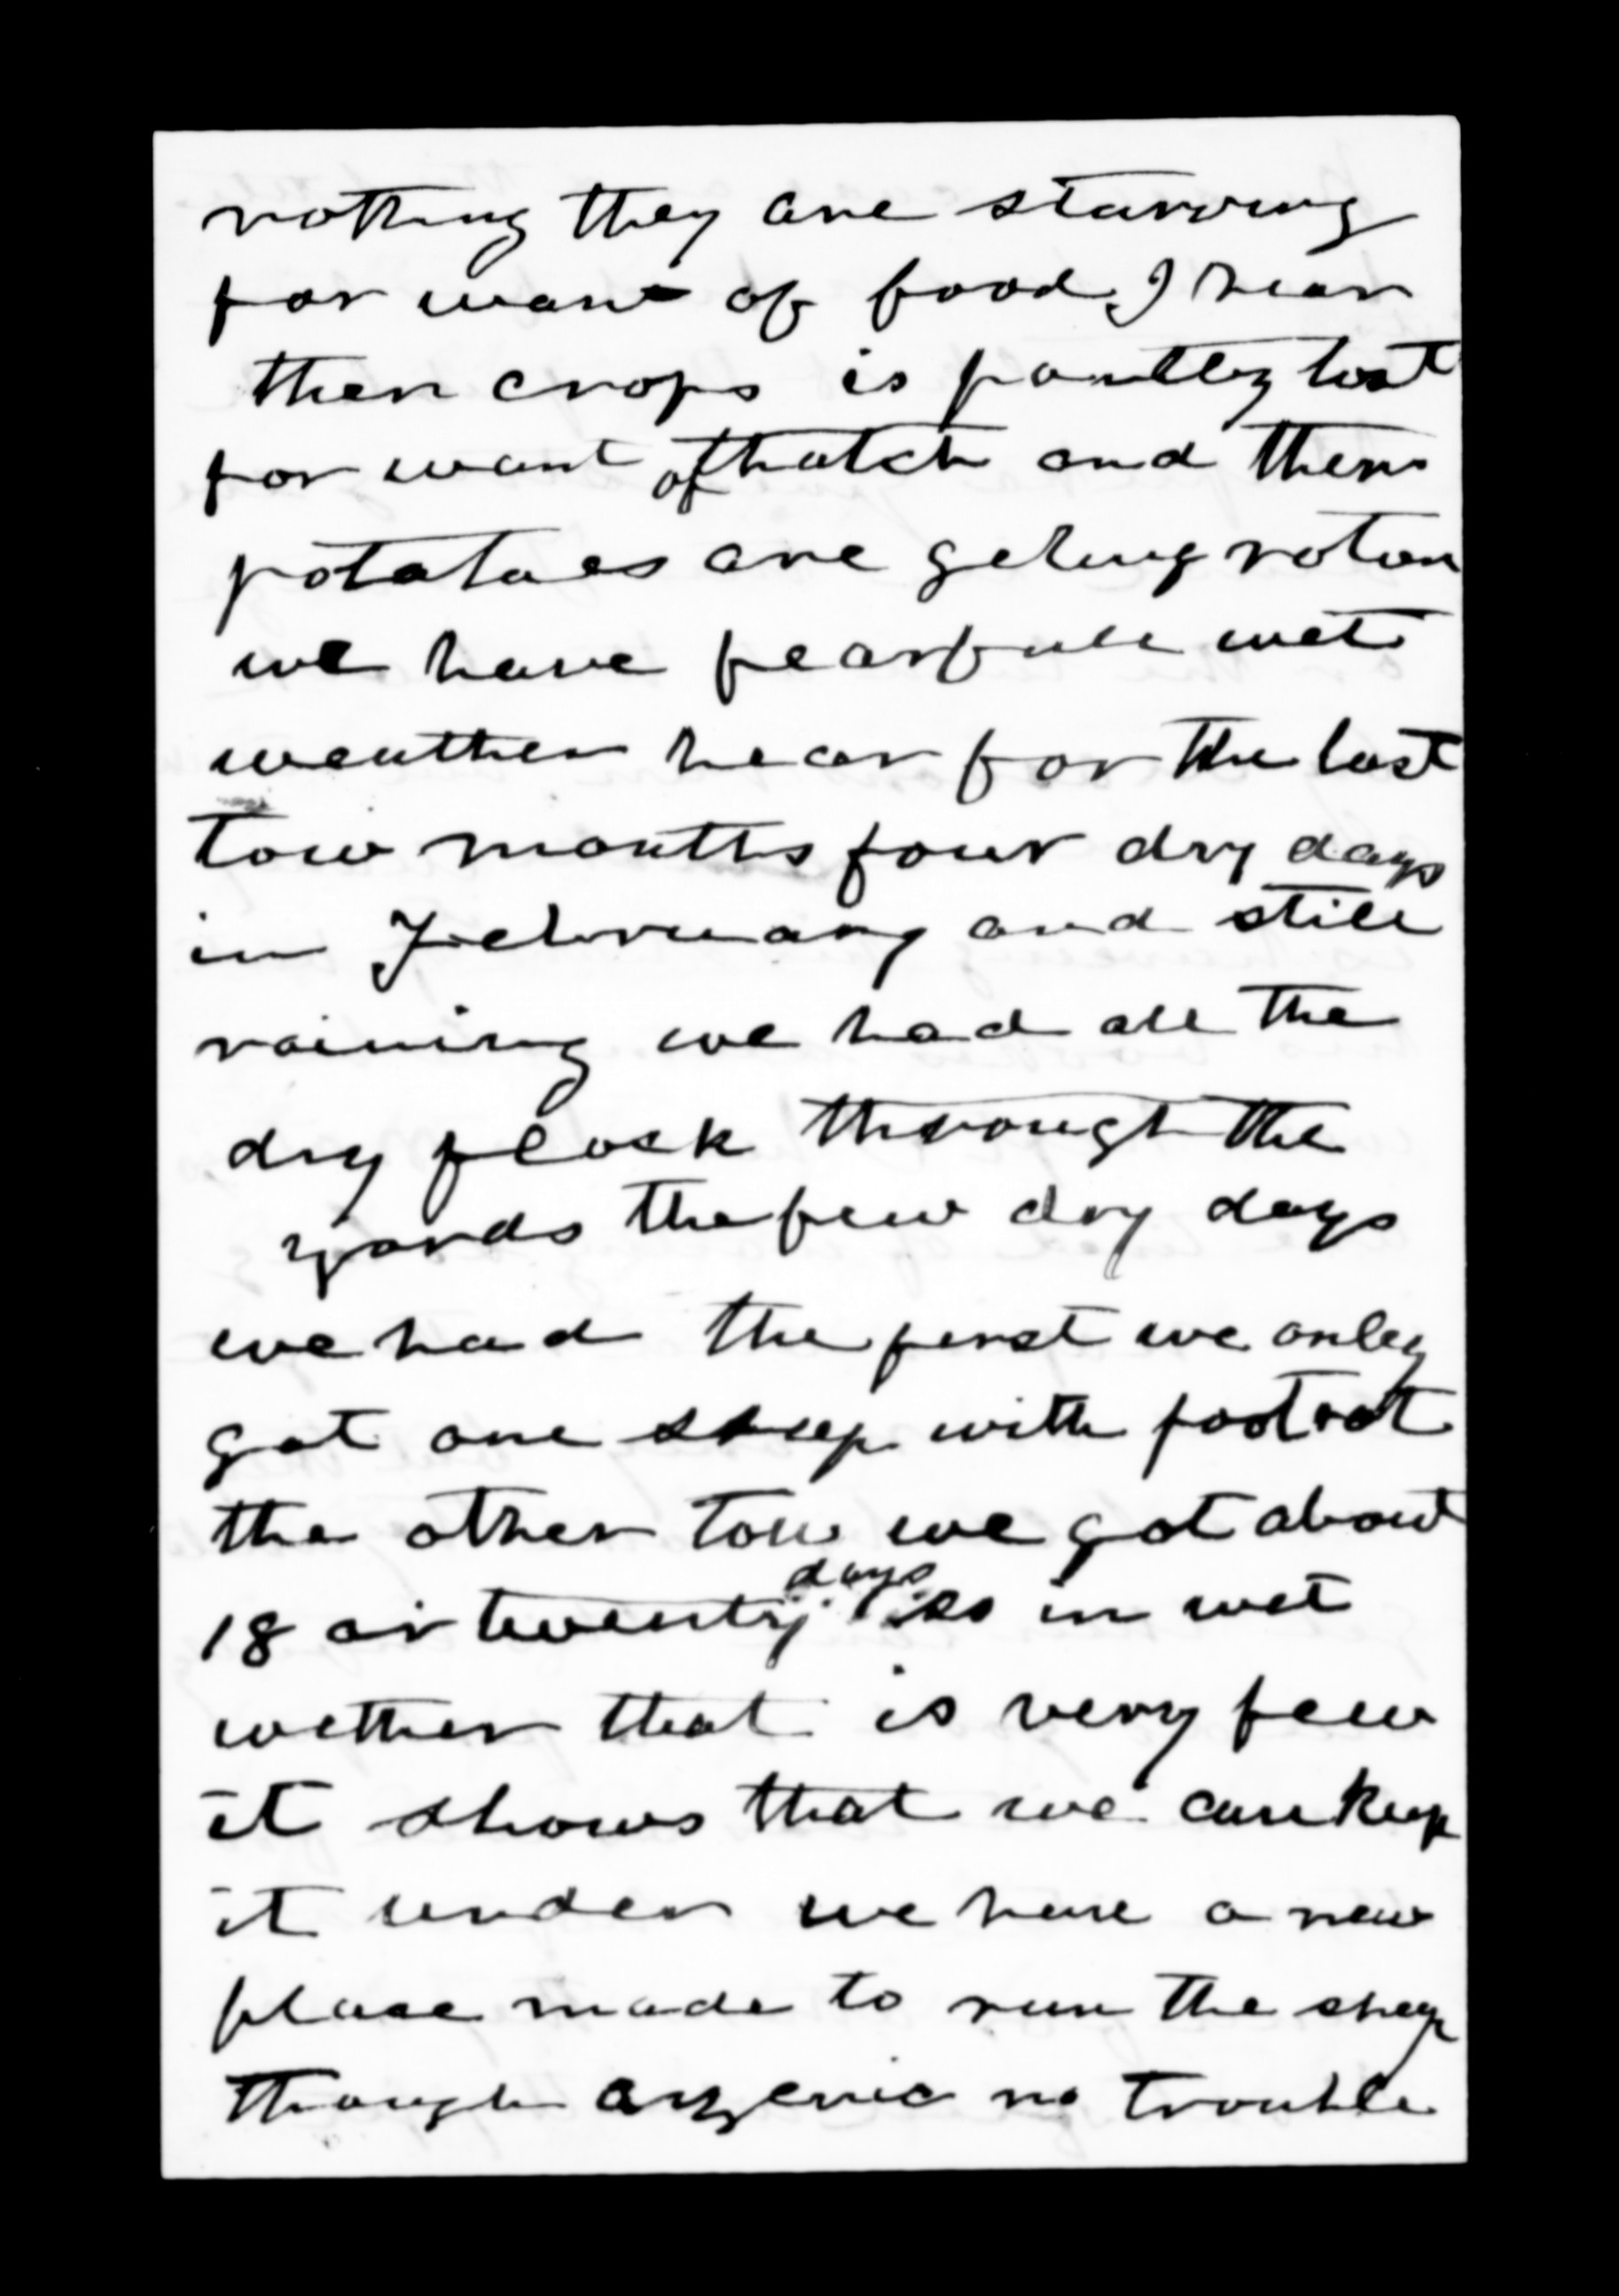 nothing they are starving
for want of food I hear
ther crops is partley lost
for want of thatch and ther
potatoes are geting roton
we have fearfull wet
weather hear for the last
tow months four dry days
in February and still
raining we had all the
dry flock through the
yards the few dry days
we had the first we onley
got one sheep with footrot
the other tow we got about
18 or twenty days in wet
wether that is very few
it shows that we can keep
it under we have a new
place made to run the sheep
though arzenic no trouble